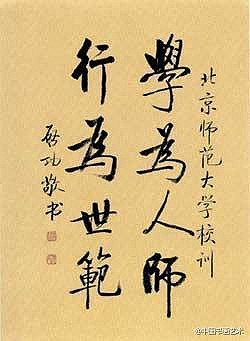 北京师范大学校训
學為人師
行為世範
启功敬书
@中国书画艺术